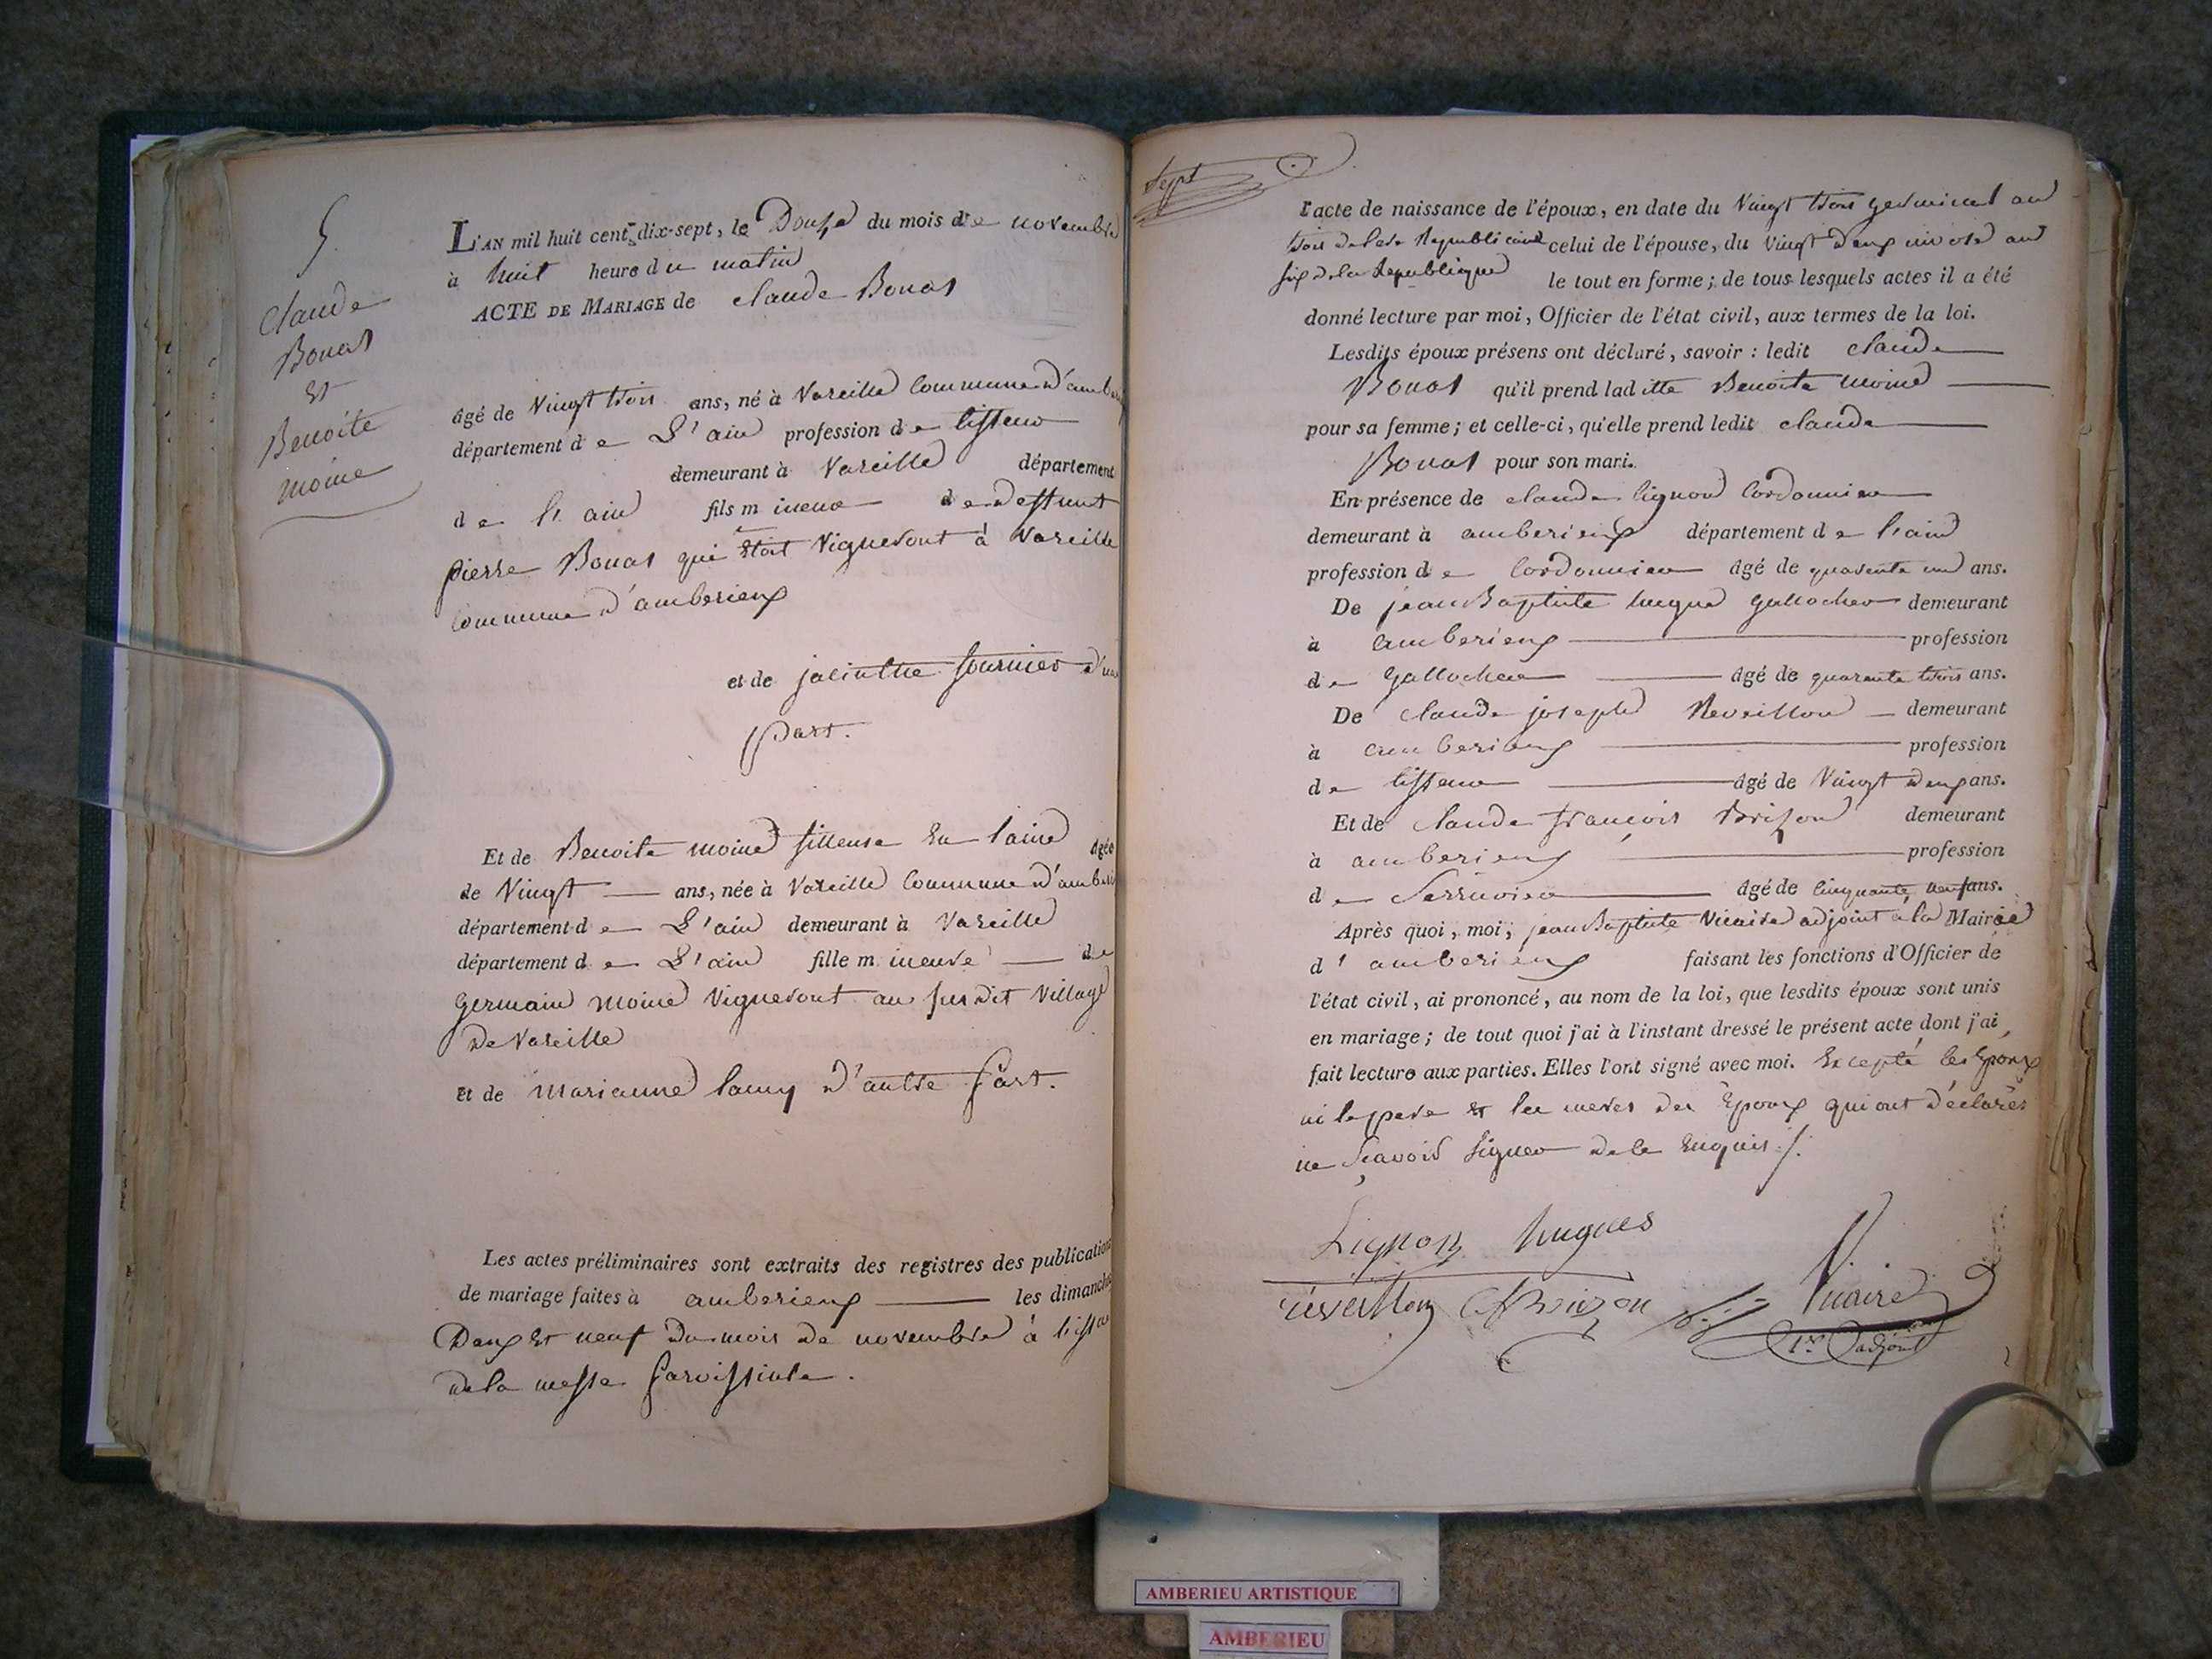 5.
Claude
Bonat
et
Benoite
moine
L'AN mil huit cent dix-sept, le Douze du mois de novembre
à huit heure du matin
ACTE DE MARIAGE de claude Bonat
âgé de Vingt trois ans, né à Vareille Commune d'amberi
département de L'ain profession de tisseur
demeurant à Vareille département
de l'ain fils mineur de deffunt
pierre Bonat qui etoit Vigneront à Vareille
Commune d'amberieux
et de jacinthe fournier d'une
part.
Et de Benoite moine filleuse en laine âgée
de Vingt ans, née à Vareille Commune d'amberi
département de L'ain demeurant à Vareille
département de L'ain fille mineure de
germain moine Vigneront au susdit Village
de Vareille
et de marianne lamy d'autre part.
Les actes préliminaires sont extraits des registres des publications
de mariage faites à amberieux les dimanches
Deux et neuf du mois de novembre à l'issue
de la messe paroissiale.
sept
l'acte de naissance de l'époux, en date du Vingt trois germinal an
trois de l'ere Republicaine celui de l'épouse, du vingt deux nivose an
six de la Republique le tout en forme; de tous lesquels actes il a été
donné lecture par moi, Officier de l'état civil, aux termes de la loi.
Lesdits époux présens ont déclaré, savoir : ledit claude
Bonat qu'il prend laditte Benoite moine
pour sa femme; et celle-ci, qu'elle prend ledit claude
Bonat pour son mari.
En présence de claude lignon Cordonnier
demeurant à amberieux département de l'ain
profession de Cordonnier âgé de quarente un ans.
De jean Baptiste hugue gallocher demeurant
à amberieux profession
de gallocher âgé de quarante trois ans.
De claude joseph Reveillon demeurant
à amberieux profession
de tisseur âgé de Vingt deux ans.
Et de claude françois demeurant
à amberieux profession
de Serrurier âgé de cinquante neuf ans.
Après quoi, moi, jean Baptiste Vicaire adjoint à la Mairie
d'amberieux faisant les fonctions d'Officier de
l'état civil, ai prononcé, au nom de la loi, que lesdits époux sont unis
en mariage; de tout quoi j'ai à l'instant dressé le présent acte dont j'ai
fait lecture aux parties. Elles l'ont signé avec moi. Excepté les Epoux
ni le pere et les meres des Epoux qui ont déclarés
ne scavoir signer de ce enquis ./.
Lignon hugues
réveillon Vicaire
1er adjoint
AMBERIEU ARTISTIQUE
AMBERIEU